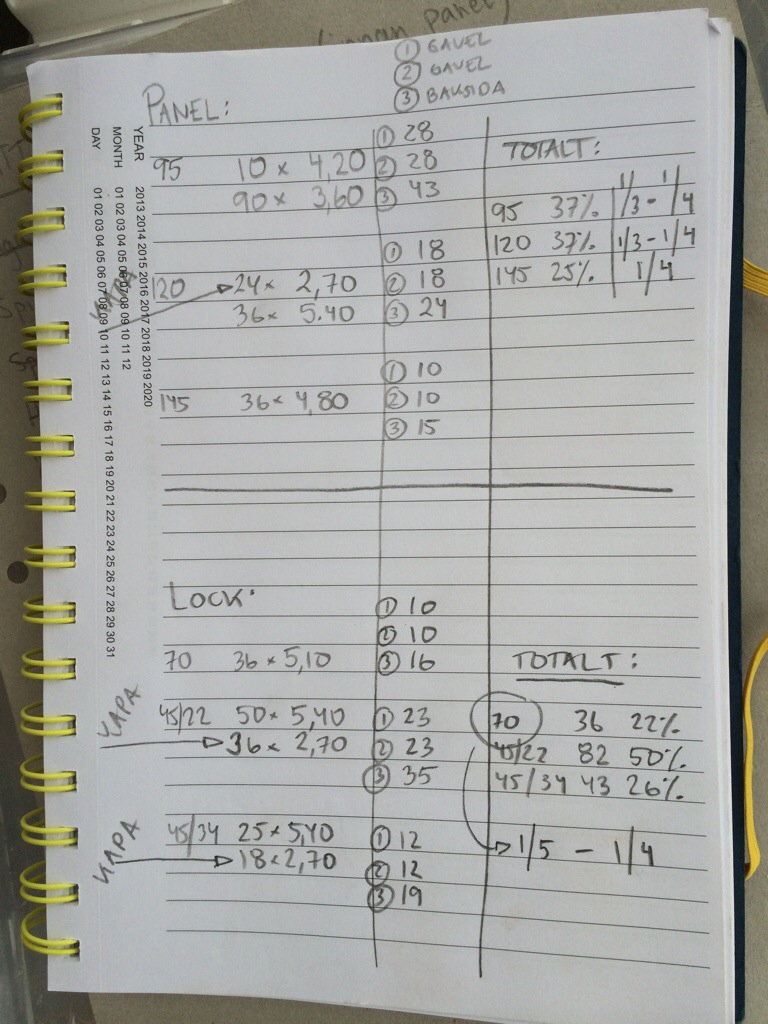 (innan panel)
① GAVEL
② GAVEL
③ BAKSIDA
PANEL:
① 28
TOTALT:
95 10 × 4,20 ② 28
90 × 3,60 ③ 43
95 37% 1/3 - 1/4
① 18
120 37% 1/3 - 1/4
120 24 × 2,70 ② 18
145 25% 1/4
36 × 5.40 ③ 24
① 10
145 36 × 4,80 ② 10
③ 15
LOCK:
① 10
② 10
70 36 × 5,10 ③ 16
TOTALT:
KAPA
45/22 50 × 5,40 ① 23
70 36 22%
36 × 2,70 ② 23
45/22 82 50%
③ 35
45/34 43 26%
KAPA
45/34 25 × 5,40 ① 12
1/5 - 1/4
18 × 2,70 ② 12
③ 19
YEAR 2013 2014 2015 2016 2017 2018 2019 2020
MONTH 01 02 03 04 05 06 07 08 09 10 11 12
DAY 01 02 03 04 05 06 07 08 09 10 11 12 13 14 15 16 17 18 19 20 21 22 23 24 25 26 27 28 29 30 31